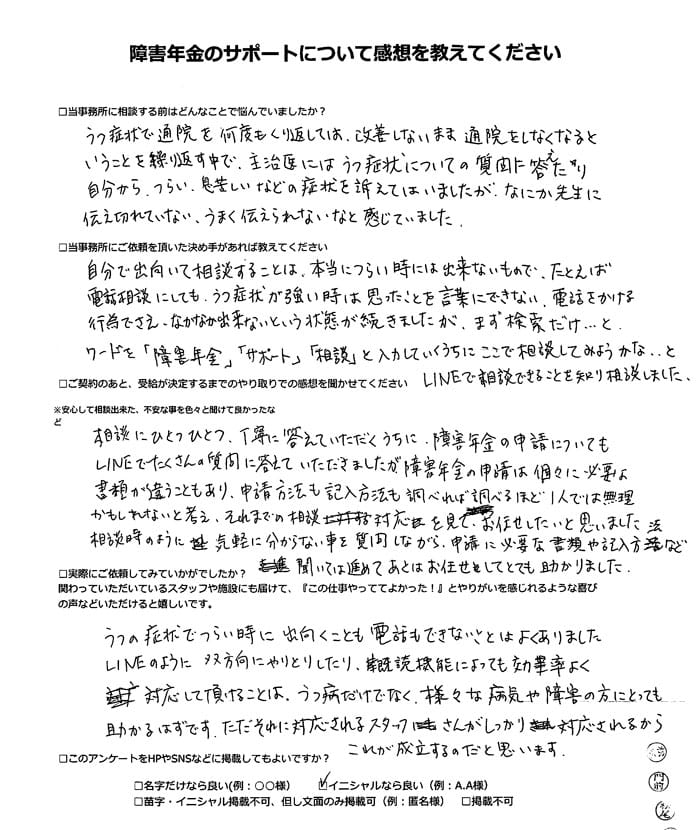 障害年金のサポートについて感想を教えてください
□当事務所に相談する前はどんなことで悩んでいましたか？
うつ症状で通院を何度もくり返しては、改善しないまま通院をしなくなると
いうことを繰り返す中で、主治医にはうつ症状についての質問に答えたり
自分から、つらい、息苦しいなどの症状を訴えてはいましたが、なにか先生に
伝え切れていない、うまく伝えられないなと感じていました。
□当事務所にご依頼を頂いた決め手があれば教えてください
自分で出向いて相談することは、本当につらい時には出来ないもので、たとえば
電話相談にしても、うつ症状が強い時は思ったことを言葉にできない、電話をかける
行為でさえ、なかなか出来ないという状態が続きましたが、まず検索だけ…と、
ワードを「障害年金」「サポート」「相談」と入力していくうちにここで相談してみようかな、、と
LINEで相談できることを知り相談しました、
□ご契約のあと、受給が決定するまでのやり取りでの感想を聞かせてください
※安心して相談出来た、不安な事を色々と聞けて良かったな
ど
相談にひとつひとつ、丁寧に答えていただくうちに、障害年金の申請についても
LINEでたくさんの質問に答えていただきましたが障害年金の申請は個々に必要な
書類が違うこともあり、申請方法も記入方法も調べれば調べるほど1人では無理
かもしれないと考え、それまでの相談対応を見て、お任せしたいと思いました
相談時のように気軽に分からない事を質問しながら、申請に必要な書類や記入方法など
聞いては進めてあとはお任せしてとても助かりました。
□実際にご依頼してみていかがでしたか？
関わっていただいているスタッフや施設にも届けて、『この仕事やっててよかった！』とやりがいを感じれるような喜び
の声などいただけると嬉しいです。
うつの症状でつらい時に出向くことも電話もできないことはよくありました
LINEのように双方向にやりとりしたり、既読機能によっても効率よく
対応して頂けることは、うつ病だけでなく、様々な病気や障害の方にとっても
助かるはずです、ただそれに対応されるスタッフさんがしっかり対応されるから
これが成立するのだと思います。
□このアンケートをHPやSNSなどに掲載してもよいですか？
□名字だけなら良い(例：○○様） ☑イニシャルなら良い（例：A.A様）
□苗字・イニシャル掲載不可、但し文面のみ掲載可（例：匿名様） □掲載不可